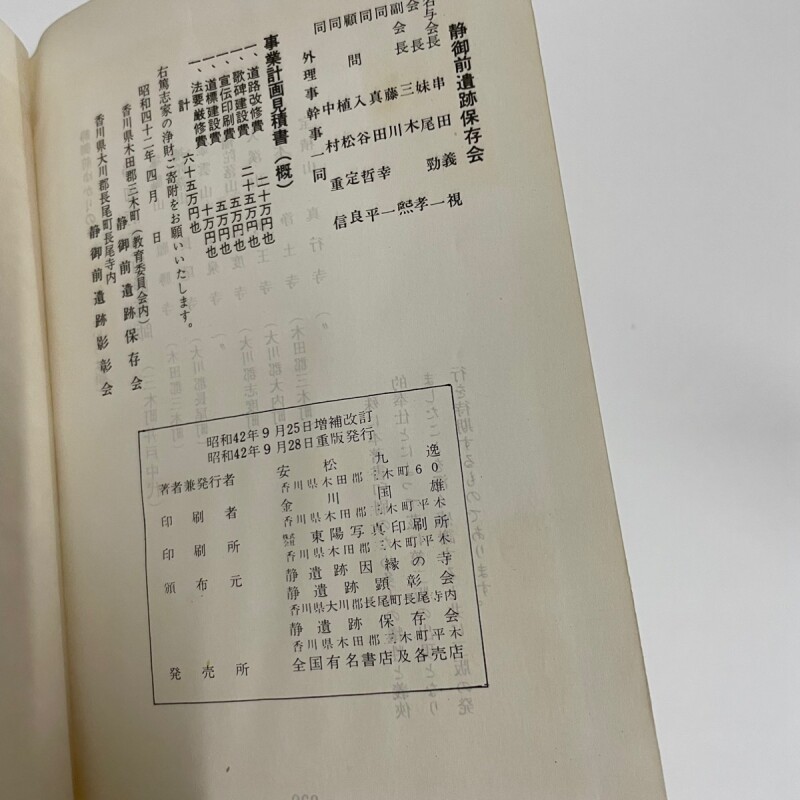 静御前遺跡保存会
名与会長 串田義視
会長 妹尾勁孝一
副会長 三木熙
同 藤川幸一
同 真田哲平
顧問 入谷定良
同 植松重信
同 中村
外理事幹事一同
事業計画見積書(概)
一、道路改修費 二十万円也
一、歌碑建設費 二十五万円也
一、宣伝印刷費 五万円也
一、道標建設費 五万円也
一、法要厳修費 十万円也
計 六十五万円也
右篤志家の浄財ご寄附をお願いいたします。
昭和四十二年四月 日
香川県木田郡三木町(教育委員会内)
静御前遺跡保存会
香川県大川郡長尾町長尾寺内
静御前遺跡影彰会
昭和42年9月25日増補改訂
昭和42年9月28日重版発行
著者兼発行者 安松九逸
香川県木田郡三木町60
印刷者 金川国雄
香川県木田郡三木町平木
印刷所 東陽写真印刷所
香川県木田郡三木町平木
頒布元 静遺跡因縁の寺
静遺跡顕彰会
香川県大川郡長尾町長尾寺内
静遺跡保存会
香川県木田郡三木町平木
発売所 全国有名書店及各売店